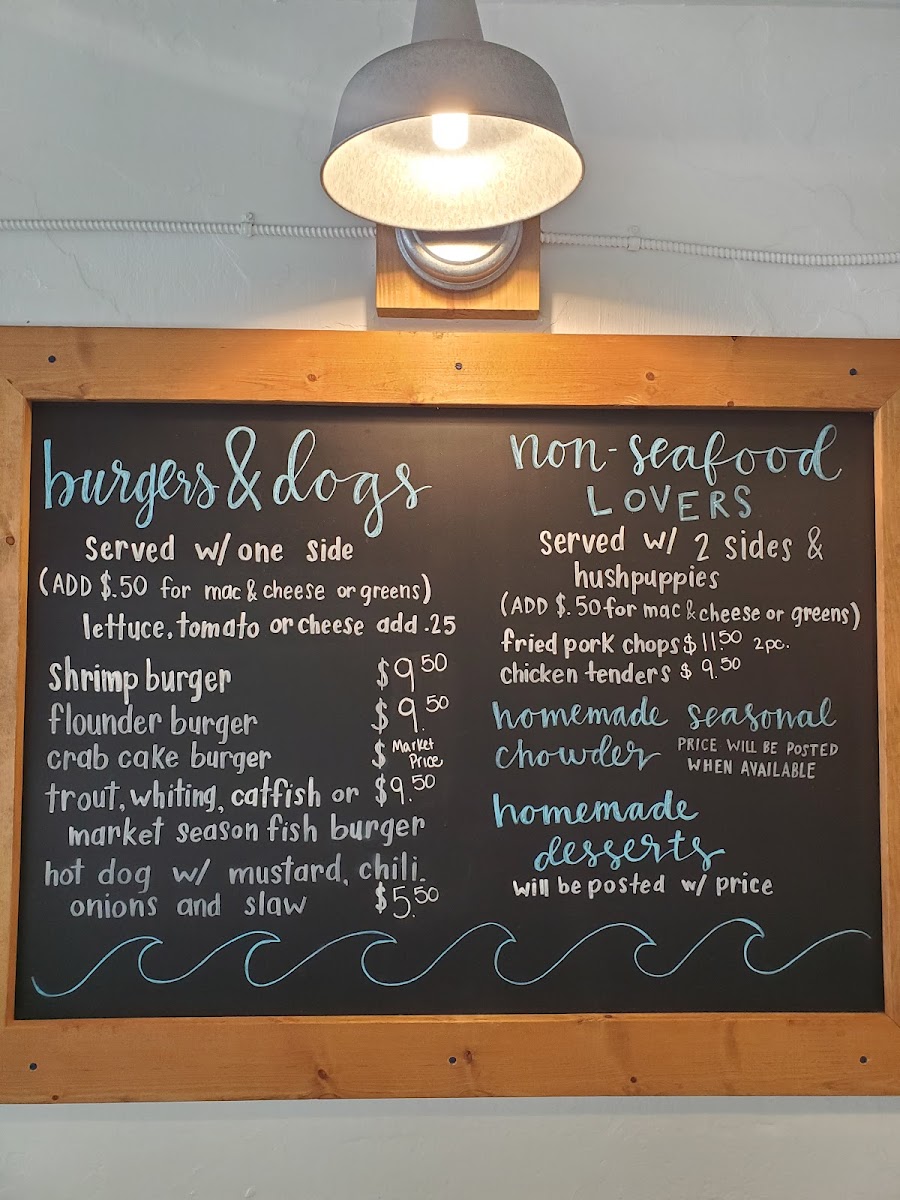 burgers & dogs
served w/ one side
(ADD $.50 for mac & cheese or greens)
lettuce, tomato or cheese add .25
shrimp burger $9.50
flounder burger $9.50
crab cake burger $ Market Price
trout, whiting, catfish or $9.50
market season fish burger
hot dog w/ mustard, chili,
onions and slaw $5.50
non-seafood
LOVERS
served w/ 2 sides &
hushpuppies
(ADD $.50 for mac & cheese or greens)
fried pork chops $11.50 2pc.
chicken tenders $9.50
homemade seasonal
chowder PRICE WILL BE POSTED
WHEN AVAILABLE
homemade
desserts
will be posted w/ price